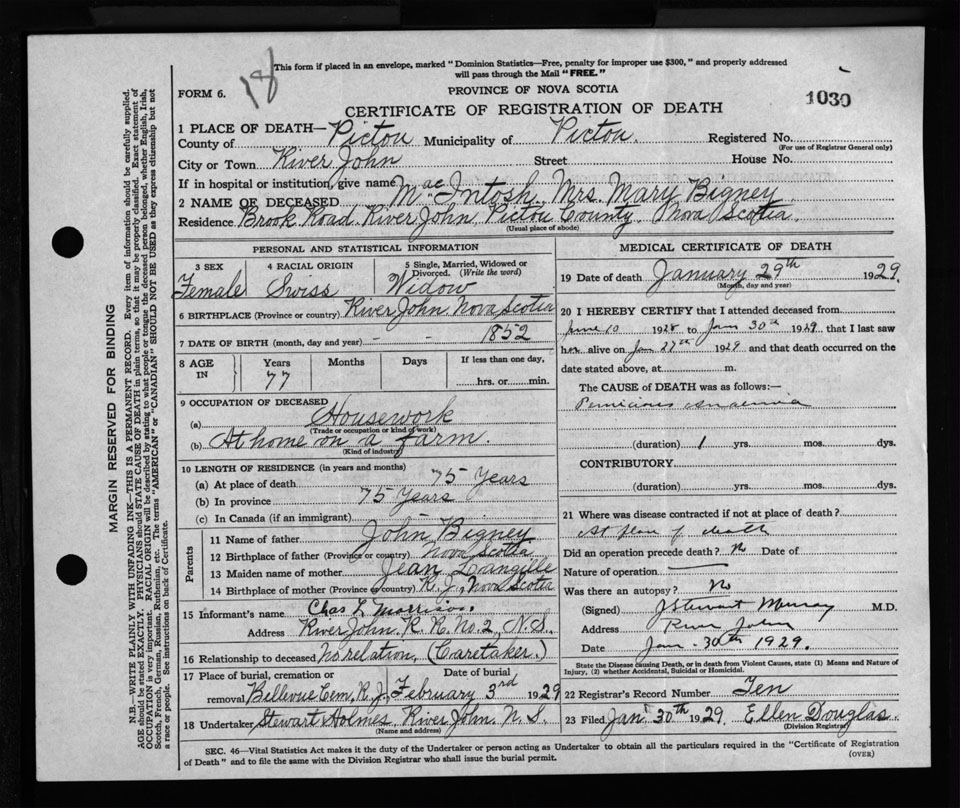 18
This form if placed in an envelope, marked "Dominion Statistics—Free, penalty for improper use $300," and properly addressed
will pass through the Mail "FREE."
FORM 6.
PROVINCE OF NOVA SCOTIA
CERTIFICATE OF REGISTRATION OF DEATH
1030
MARGIN RESERVED FOR BINDING
N.B.—WRITE PLAINLY, WITH UNFADING INK—THIS IS A PERMANENT RECORD. Every item of information should be carefully supplied.
AGE should be stated EXACTLY. PHYSICIANS should STATE CAUSE OF DEATH in plain terms, so that it may be properly classified. Exact statement of
OCCUPATION is very important. RACIAL ORIGIN will be described by stating to what people or tongue the deceased person belonged, whether English, Irish,
Scotch, French, German, Russian, Ruthenian, etc. The terms "AMERICAN" or "CANADIAN" SHOULD NOT BE USED as they express citizenship but not
a race or people. See instructions on back of Certificate.
1 PLACE OF DEATH—
County of Pictou Municipality of Pictou. Registered No.
(For use of Registrar General only)
City or Town River John Street House No.
If in hospital or institution, give name
2 NAME OF DECEASED MacIntosh, Mrs. Mary Bigney
Residence Brook Road. River John Pictou County. Nova Scotia.
(Usual place of abode)
PERSONAL AND STATISTICAL INFORMATION
3 SEX Female
4 RACIAL ORIGIN Swiss
5 Single, Married, Widowed or Divorced. (Write the word) Widow
6 BIRTHPLACE (Province or country) River John. Nova Scotia
7 DATE OF BIRTH (month, day and year) - - 1852
8 AGE IN Years 77 Months Days If less than one day, hrs. or min.
9 OCCUPATION OF DECEASED
(a) Housework
(Trade or occupation or kind of work)
(b) At home on a farm.
(Kind of industry)
10 LENGTH OF RESIDENCE (in years and months)
(a) At place of death 75 Years
(b) In province 75 Years
(c) In Canada (if an immigrant)
Parents
11 Name of father John Bigney
12 Birthplace of father (Province or country) Nova Scotia
13 Maiden name of mother Jean Langille
14 Birthplace of mother (Province or country) R. J., Nova Scotia
15 Informant's name Chas L. Morrison.
Address River John R. R. No. 2, N.S.
16 Relationship to deceased No relation, (Caretaker.)
17 Place of burial, cremation or removal Bellevue Cem, R. J. Date of burial February 3rd 1929
18 Undertaker Stewart Holmes River John, N. S.
(Name and address)
MEDICAL CERTIFICATE OF DEATH
19 Date of death January 29th 1929.
(Month, day and year)
20 I HEREBY CERTIFY that I attended deceased from
June 10 1928 to Jan 30th 1929 that I last saw
her alive on Jan 1929 and that death occurred on the
date stated above, at m.
The CAUSE OF DEATH was as follows:—
Pernicious Anaemia
(duration) 1 yrs. mos. dys.
CONTRIBUTORY.
(duration) yrs. mos. dys.
21 Where was disease contracted if not at place of death?
At place of death
Did an operation precede death? No Date of
Nature of operation
Was there an autopsy? No
(Signed) J Stewart Murray M.D.
Address River John
Date Jan-30th 1929.
State the Disease causing Death, or in death from Violent Causes, state (1) Means and Nature of
Injury, (2) whether Accidental, Suicidal or Homicidal.
22 Registrar's Record Number Ten
23 Filed Jan' 30th 1929. Ellen Douglas.
(Division Registrar)
SEC. 46—Vital Statistics Act makes it the duty of the Undertaker or person acting as Undertaker to obtain all the particulars required in the "Certificate of Registration
of Death" and to file the same with the Division Registrar who shall issue the burial permit.
(OVER)